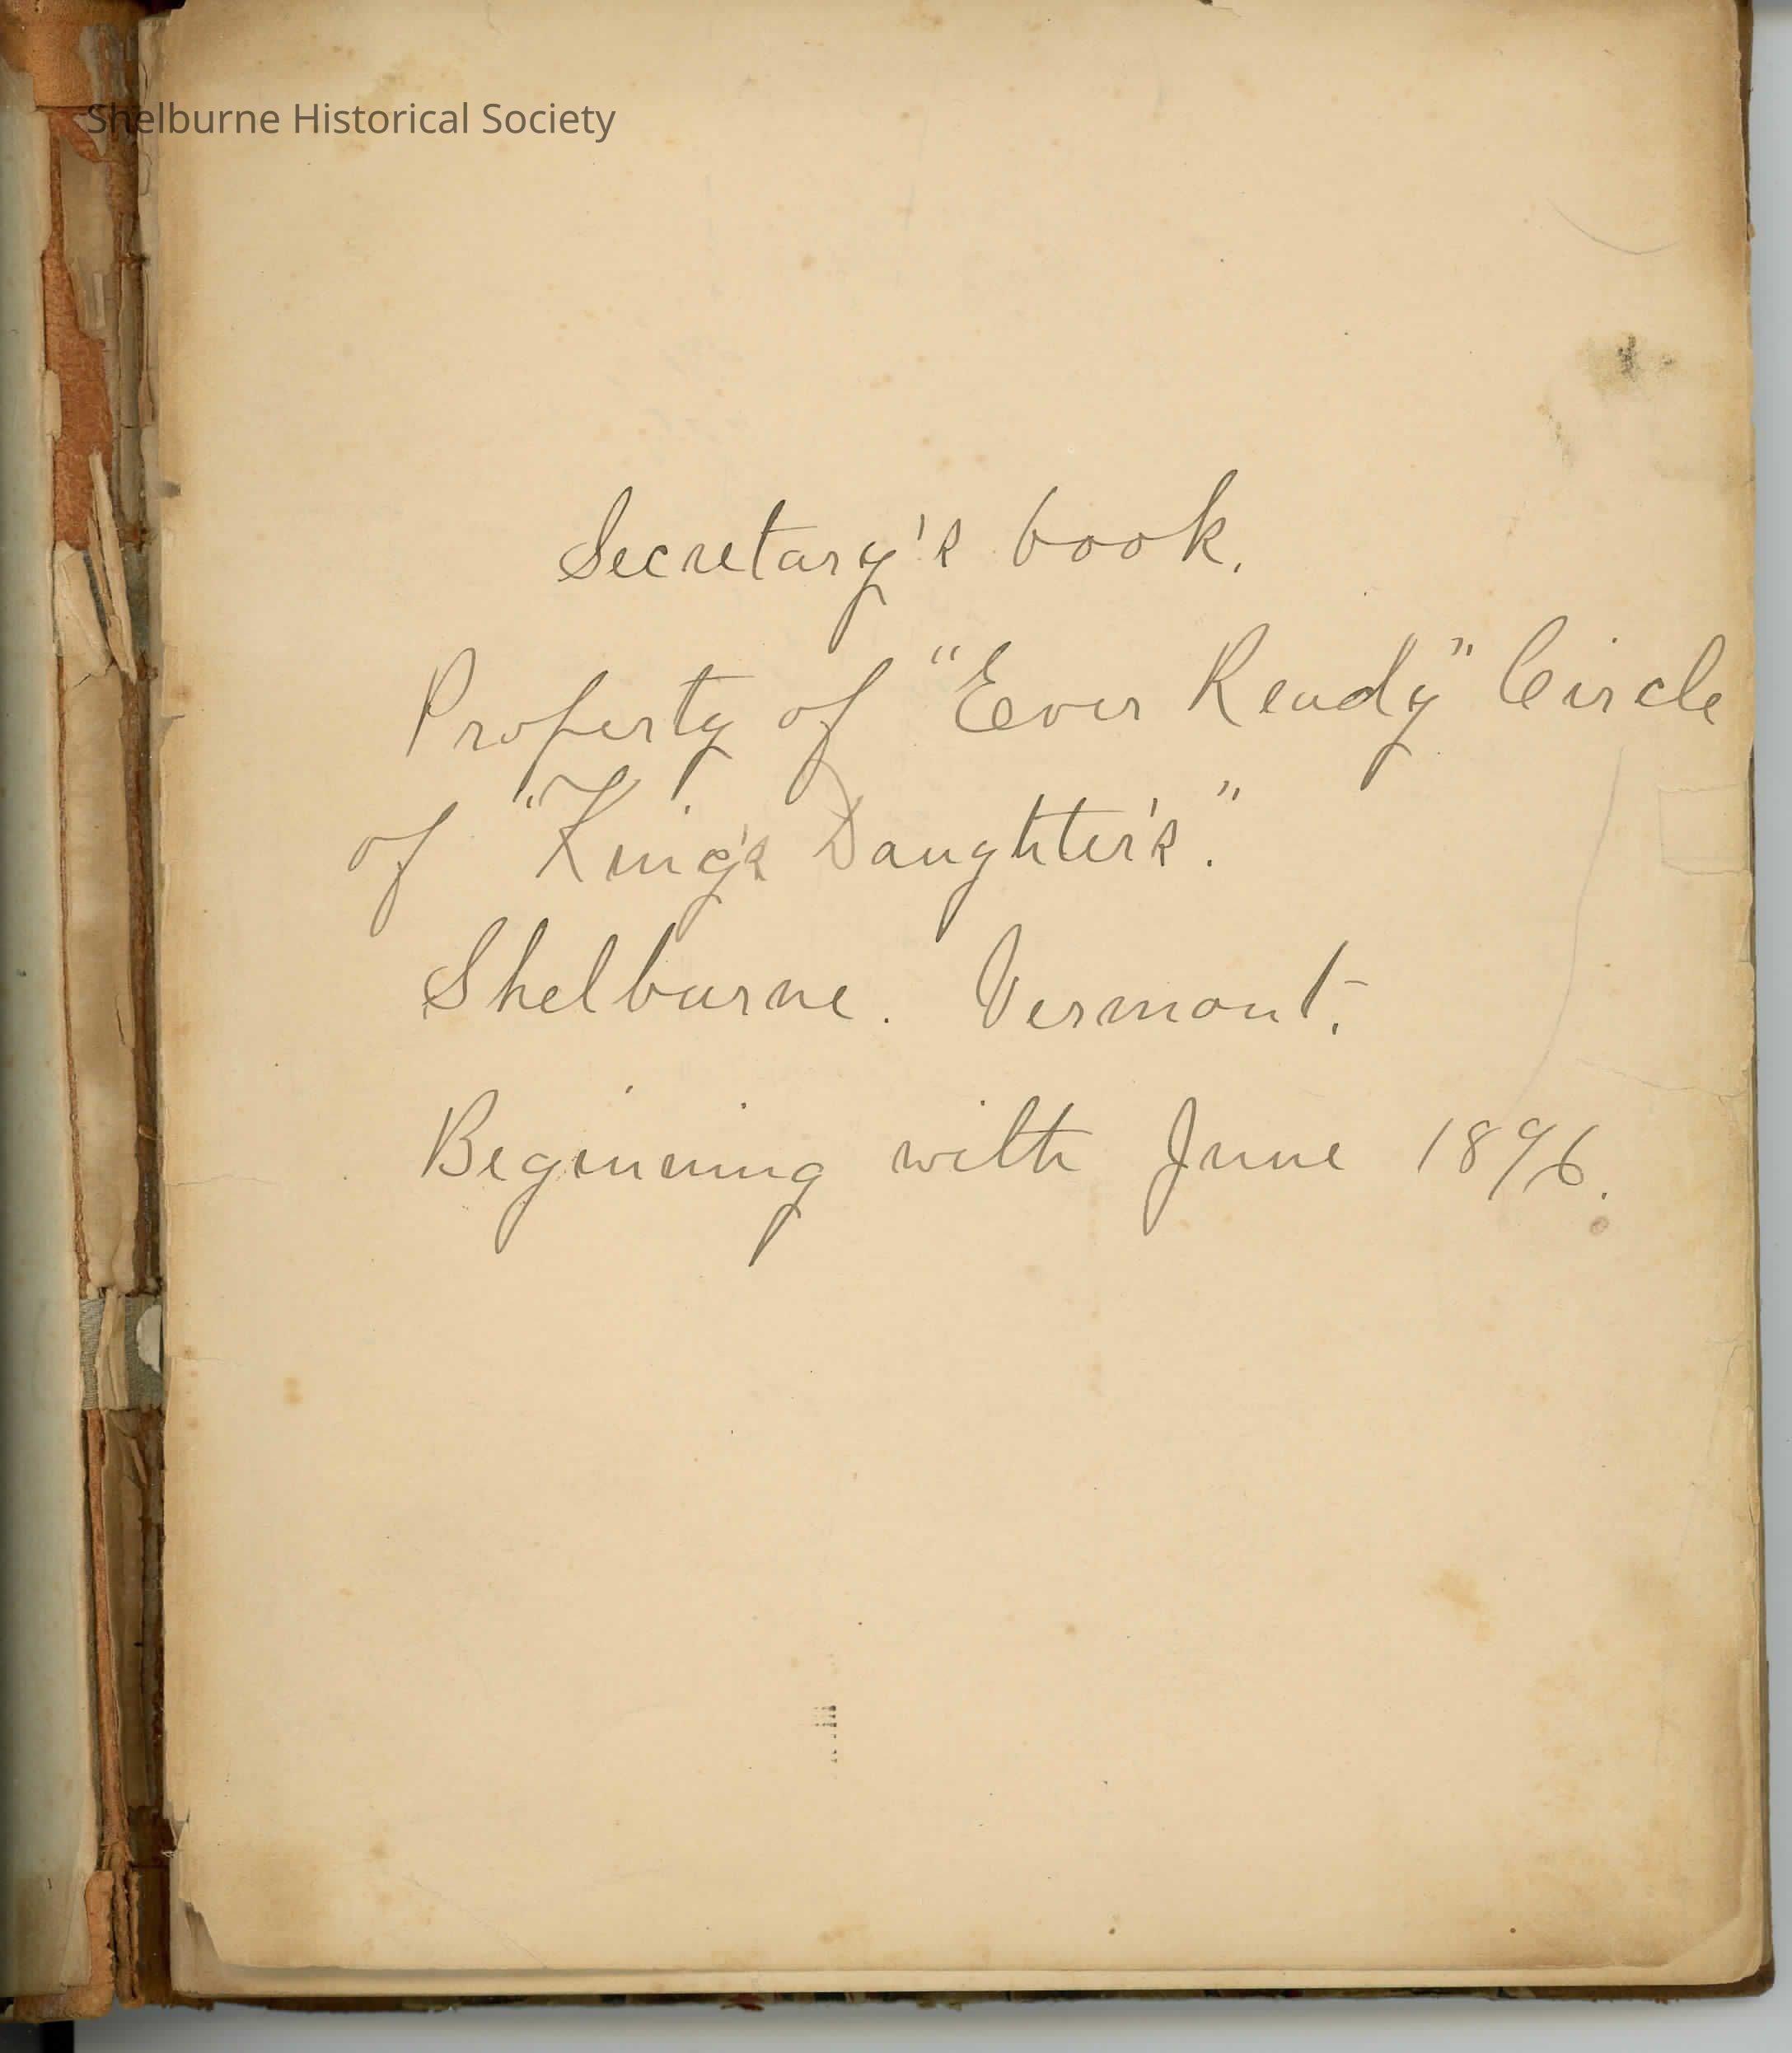 Shelburne Historical Society
Secretary's book.
Property of "Ever Ready" Circle
of "King's Daughter's."
Shelburne. Vermont.
Beginning with June 1896.